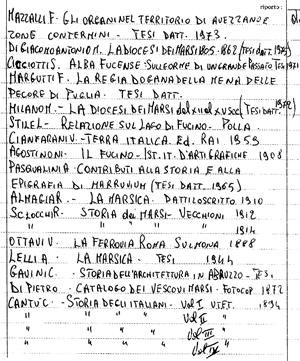 riporto:
MAZZALLI F. GLI ORGANI NEL TERRITORIO DI AVEZZANO E
ZONE CONTERMINI - TESI DATT. 1973.
DI GIACOMANTONIO M. LA DIOCESI DEI MARSI 1805-1862 (TESI DATT. 1975)
CICCIOTTI S. ALBA FUCENSE: SULLE ORME DI UN GRANDE PASSATO TESI 1971
MARGUTTI F. LA REGIA DOGANA DELLA MENA DELLE
PECORE DI PUGLIA. TESI DATT.
MILANO M. - LA DIOCESI DEI MARSI DAL XII AL XV SEC. (TESI DATT.
STILE L. - RELAZIONE SUL LAGO DI FUCINO - POLLA
CIANFARANI V. - TERRA ITALICA. ED. RAI 1959
AGOSTINONI. IL FUCINO - IST. IT. D'ARTI GRAFICHE 1908
PASQUALINI A CONTRIBUTI ALLA STORIA E ALLA
EPIGRAFIA DI MARRUVIUM (TESI DATT. 1965)
ALMAGIA R. - LA MARSICA. DATTILOSCRITTO 1910
SCLOCCHI R. STORIA dei MARSI - VECCHIONI 1912
" " " " 1914
OTTAVI V. LA FERROVIA ROMA SULMONA 1888
LELLI A. LA MARSICA - TESI 1944
GAVINI C. - STORIA DELL'ARCHITETTURA IN ABRUZZO - TESI
DI PIETRO - CATALOGO DEI VESCOVI MARSI - FOTOCOP. 1872
CANTU' C. - STORIA DEGLI ITALIANI - Vol I UTET. 1894
" " " Vol II "
" " " Vol III "
" " " Vol IV "